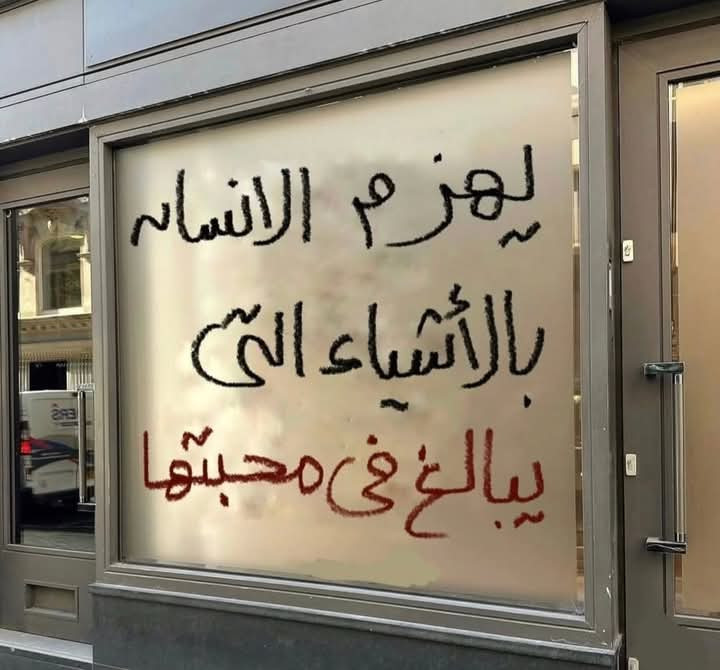 يهزم الانسان
بالأشياء التي
يبالغ في محبتها
ERS